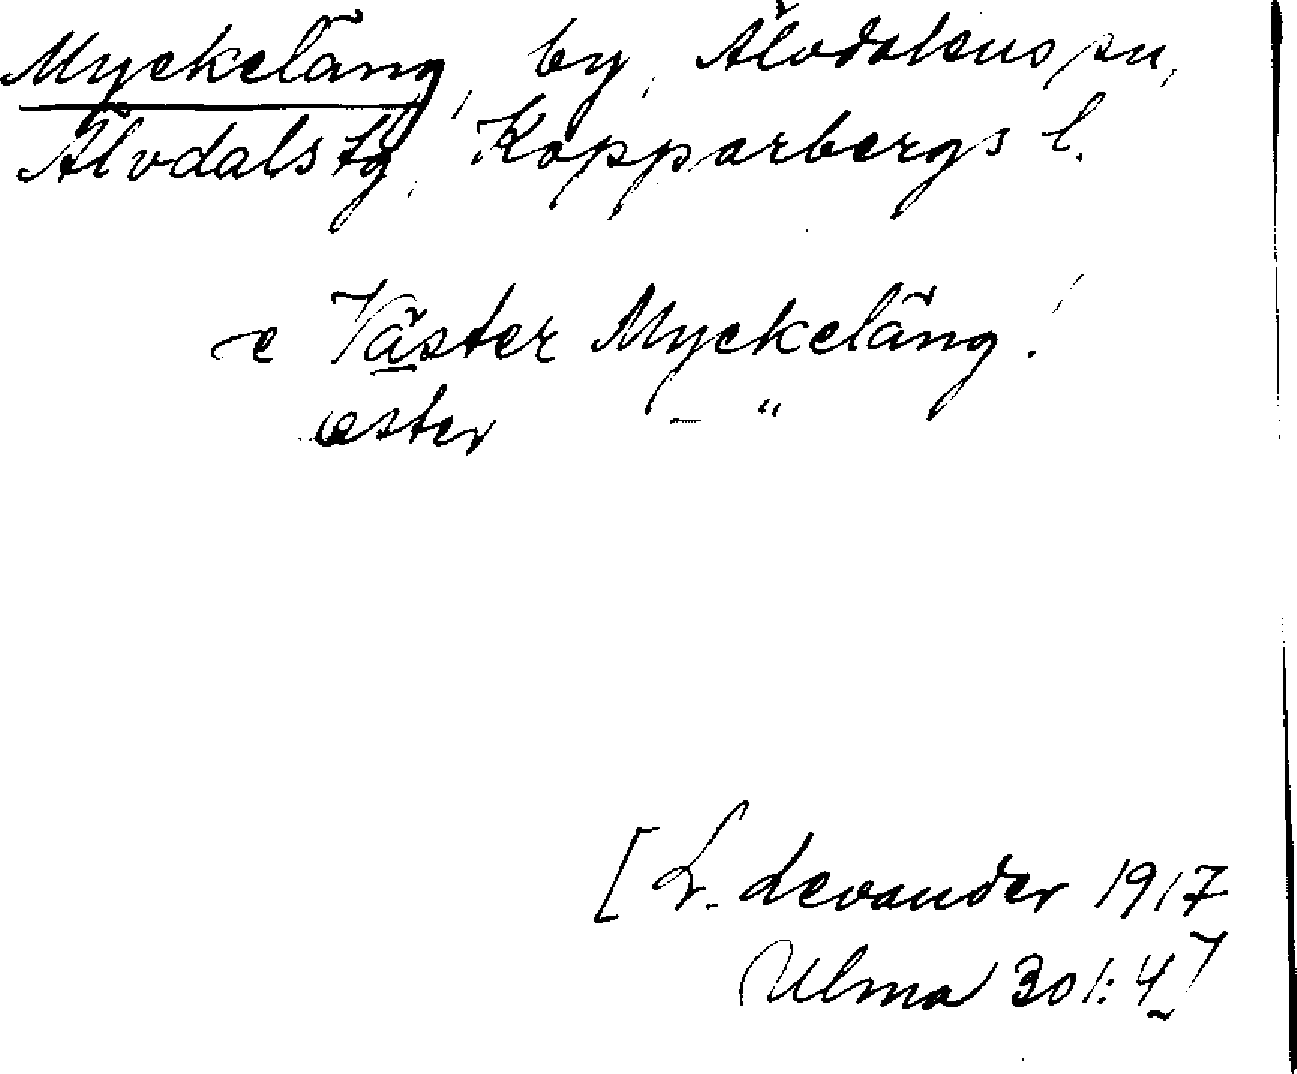 Myckeläng, by, Älvdalens sn,
Älvdals tg, Kopparbergs l.
e Väster Myckeläng!
öster – "
[L. Levander 1917
Ulma 301:4]